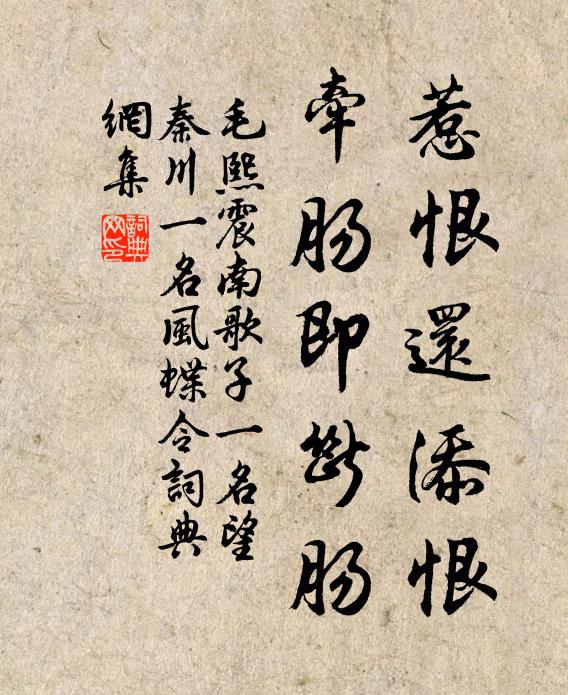 惹恨還添恨
牽腸即斷腸
毛熙震南歌子一名望
秦川一名風蝶令詞典
網集
詞典網印